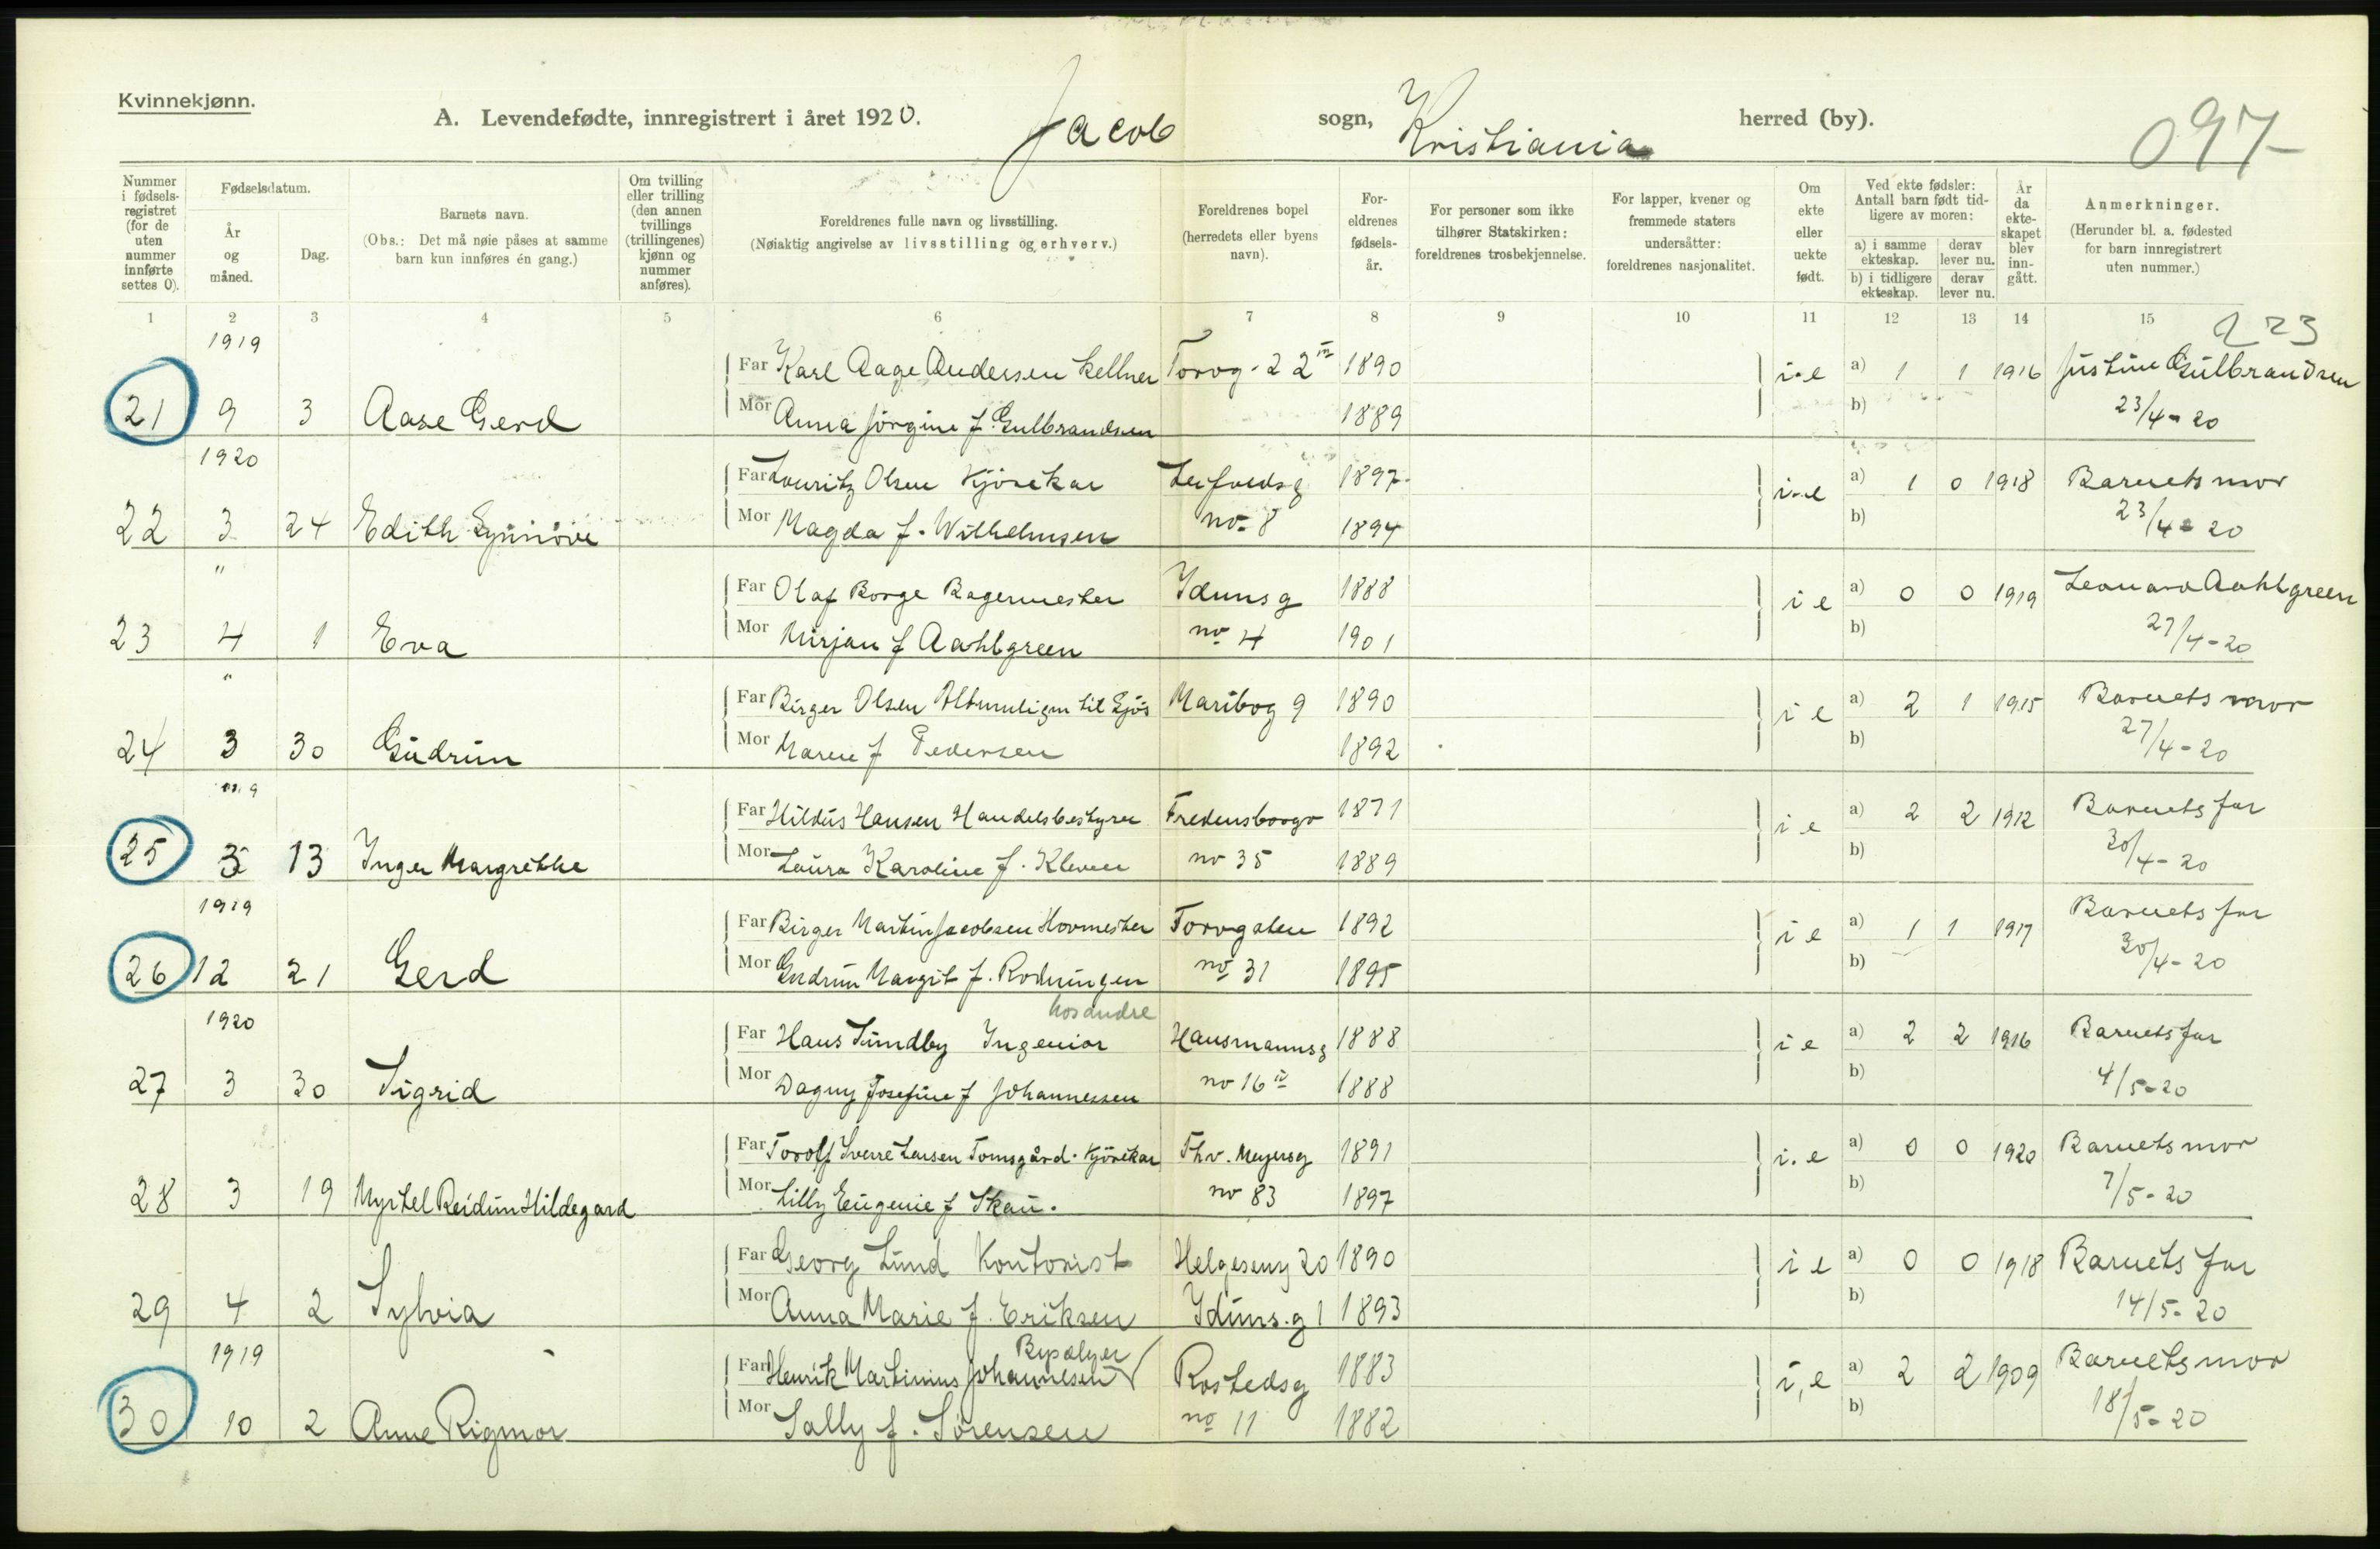 Kvinnekjønn.
A. Levendefødte, innregistrert i året 1920. Jacob sogn, Kristiania herred (by). 097-
Nummer i fødsels-registret (for de uten nummer innførte settes 0).
Fødselsdatum.
År og måned.
Dag.
Barnets navn.
(Obs.: Det må nøie påses at samme barn kun innføres én gang.)
Om tvilling eller trilling (den annen tvillings (trillingenes) kjønn og nummer anføres).
Foreldrenes fulle navn og livsstilling.
(Nøiaktig angivelse av livsstilling og erhverv.)
Foreldrenes bopel (herredets eller byens navn).
For-eldrenes fødsels-år.
For personer som ikke tilhører Statskirken: foreldrenes trosbekjennelse.
For lapper, kvener og fremmede staters undersåtter: foreldrenes nasjonalitet.
Om ekte eller uekte født.
Ved ekte fødsler: Antall barn født tid-ligere av moren:
a) i samme ekteskap. derav lever nu.
b) i tidligere ekteskap. derav lever nu.
År da ekte-skapet blev inn-gått.
Anmerkninger.
(Herunder bl. a. fødested for barn innregistrert uten nummer.)
1 2 3 4 5 6 7 8 9 10 11 12 13 14 15
223
1919
Far Karl Aage Andersen kellner Torvg. 22 III 1890 i.e a) 1 1 1916 Justine Gulbrandsen
21 9 3 Aase Gerd Mor Anna Jørgine f. Gulbrandsen 1889 b) 23/4-20
1920
Far Louritz Olsen Kjørekar 1897 i.e a) 1 0 1918 Barnets mor
22 3 24 Edith Synnøve Mor Magda f. Wilhelmsen no 8 1894 b) 23/4-20
"
Far Olaf Borge Bagermester Idunsg 1888 i e a) 0 0 1919 Leonard Aahlgreen
23 4 1 Eva Mor Mirjan f Aahlgreen no 4 1901 b) 27/4-20
"
Far Birger Olsen Altmuligm til Sjøs Maribog 9 1890 i e a) 2 1 1915 Barnets mor
24 3 30 Gudrun Mor Maren f Pedersen 1892 b) 27/4-20
1919
Far Hildus Hansen Handelsbestyrer Fredensborgv 1871 i e a) 2 2 1912 Barnets far
25 3 13 Inger Margrethe Mor Laura Karoline f. Kleven no 35 1889 b) 30/4-20
1919
Far Birger Martin Jacobsen Hovmester Torvgaten 1892 i e a) 1 1 1917 Barnets far
26 12 21 Gerd Mor Gudrun Margit f. Rodningen no 31 1895 b) 30/4-20
1920 hos andre
Far Hans Sundby Ingeniør Hausmannsg 1888 i e a) 2 2 1916 Barnets far
27 3 30 Sigrid Mor Dagny Josefine f Johannessen no 16 IV 1888 b) 4/5-20
Far Torolf Sverre Larsen Tomsgård. Kjørekar Thv. Meyersg 1891 i. e a) 0 0 1920 Barnets mor
28 3 19 Myrtel Reidun Hildegard Mor Lilly Eugenie f Skau. no 83 1897 b) 7/5-20
Far Georg Lund Kontorist Helgeseng 20 1890 i e a) 0 0 1918 Barnets far
29 4 2 Sylvia Mor Anna Marie f. Eriksen Iduns.g 1 1893 b) 14/5-20
1919
Far Henrik Martinius Johannesen Rostedsg 1883 i, e a) 2 2 1909 Barnets mor
30 10 2 Anne Rigmor Mor Sally f. Sørensen no 11 1882 b) 18/5-20